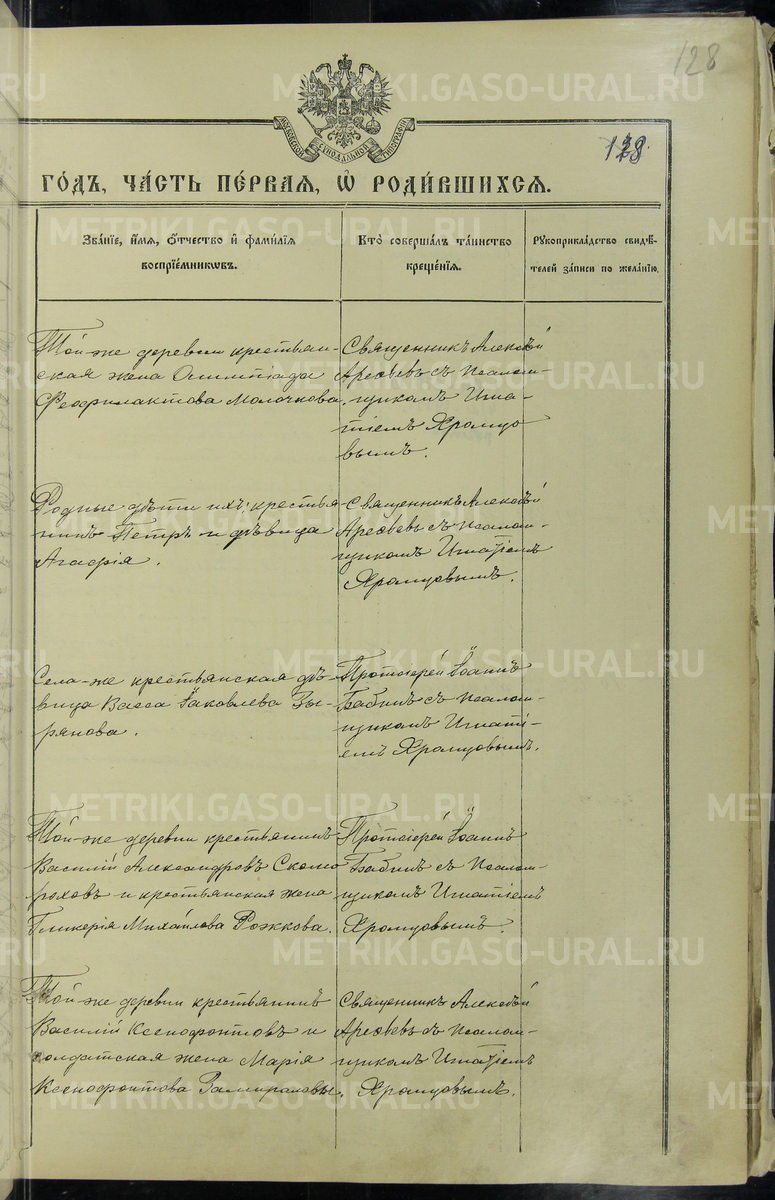 128
МОСКОВСКОЙ СѴНОДАЛЬНОЙ ТИПОГРАФІИ
128.
ГО́ДЪ, ЧА́СТЬ ПЕ́РВАЯ, Ѡ҆ РОДИ́ВШИХСЯ.
Зва́нїе, и҆́мѧ, ѻ҆́тчество и҆ фами́лїѧ
воспрїе́мникѡвъ.
Кто̀ соверша́лъ та́инство
креще́нїѧ.
Рꙋкоприкла́дство свидѣ́-
телей за́писи по жела́нїю.
Той-же деревни крестьян-
ская жена Олимпіада
Феофилактова Молочкова.
Священникъ Алексѣй
Арефьевъ съ псалом-
щикомъ Игна-
тіемъ Храмцо
вымъ.
Родные дѣти ихъ: крестья-
нинъ Петръ и дѣвица
Агафія.
Священникъ Алексѣй
Арефьевъ съ псалом-
щикомъ Игнатіемъ
Храмцовымъ.
Села-же крестьянская дѣ-
вица Васса Іаковлева Зы-
рянова.
Протоіерей Іоаннъ
Бабинъ съ псалом-
щикомъ Игнаті-
емъ Храмцовымъ.
Той-же деревни крестьянинъ
Василій Александровъ Скомо
роховъ и крестьянская жена
Гликерія Михайлова Рожкова.
Протоіерей Іоаннъ
Бабинъ съ псалом-
щикомъ Игнатіемъ
Храмцовымъ.
Той-же деревни крестьянинъ
Василій Ксенофонтовъ и
солдатская жена Марія
Ксенофонтова Замираловы.
Священникъ Алексѣй
Арефьевъ съ псалом-
щикомъ Игнатіемъ
Храмцовымъ.
METRIKI.GASO-URAL.RU